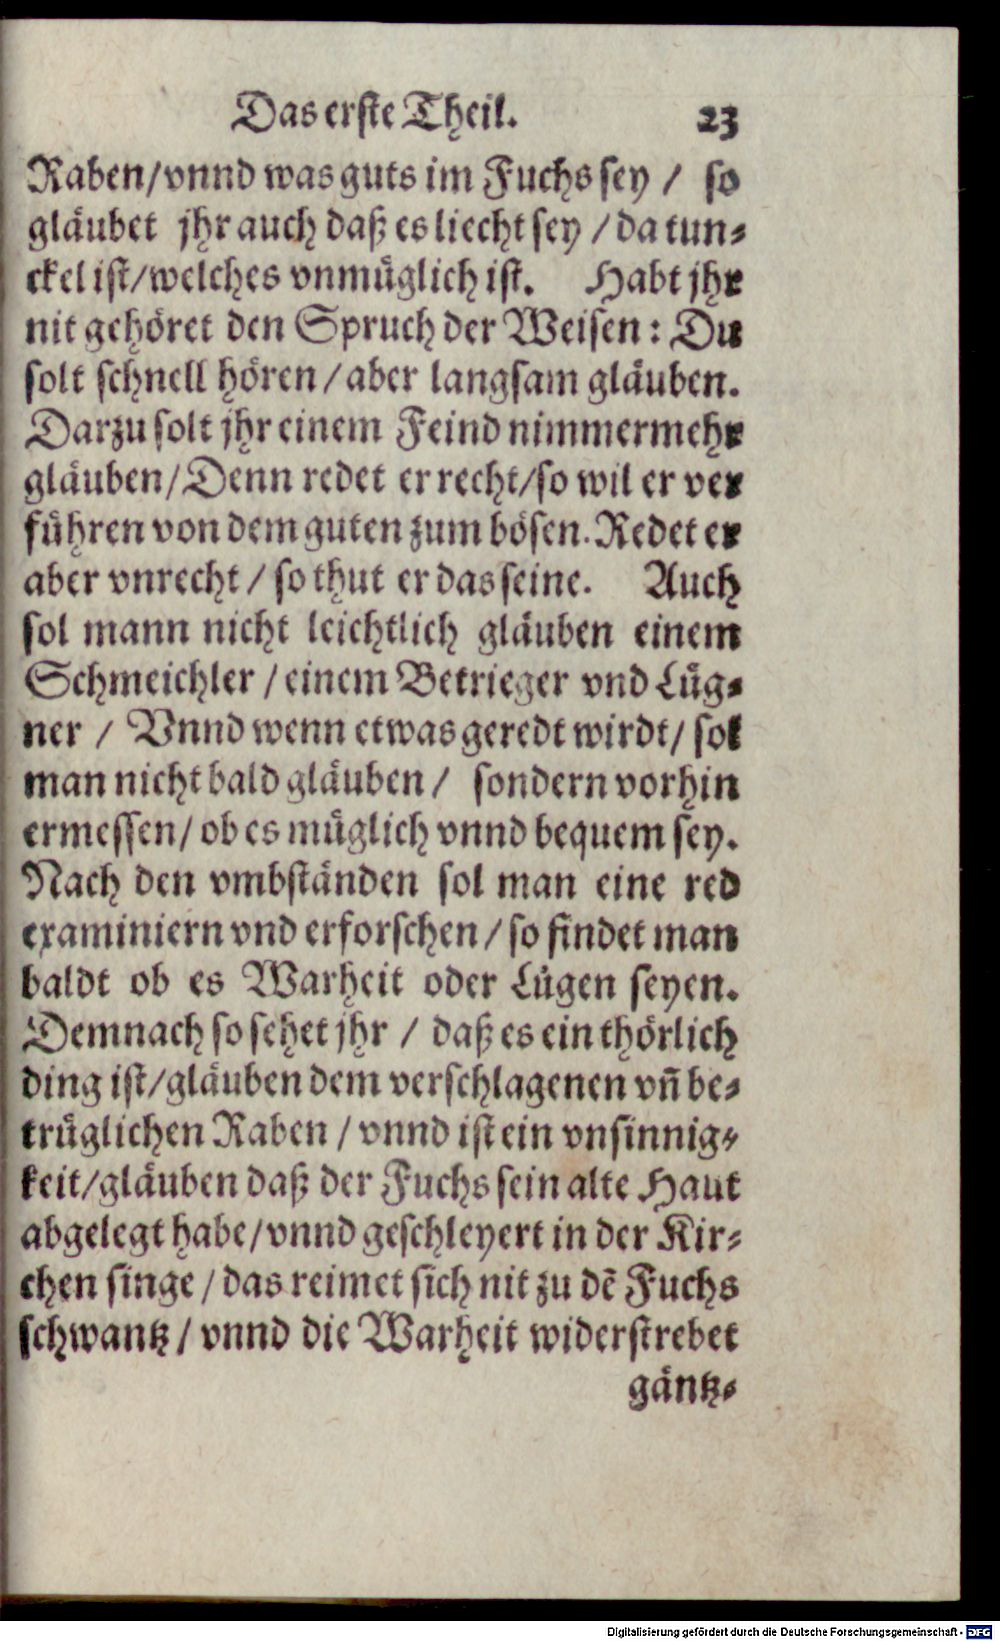 Das erste Theil. 23
Raben/vnnd was guts im Fuchs sey / so
gläubet jhr auch daß es liecht sey / da tun-
ckel ist/welches vnmüglich ist. Habt jhr
nit gehöret den Spruch der Weisen: Du
solt schnell hören / aber langsam gläuben.
Darzu solt jhr einem Feind nimmermehr
gläuben/Denn redet er recht/so wil er ver
führen von dem guten zum bösen. Redet er
aber vnrecht / so thut er das seine. Auch
sol mann nicht leichtlich gläuben einem
Schmeichler / einem Betrieger vnd Lüg-
ner / Vnnd wenn etwas geredt wirdt/ sol
man nicht bald gläuben / sondern vorhin
ermessen/ ob es müglich vnnd bequem sey.
Nach den vmbständen sol man eine red
examiniern vnd erforschen / so findet man
baldt ob es Warheit oder Lügen seyen.
Demnach so sehet jhr / daß es ein thörlich
ding ist/gläuben dem verschlagenen vñ be-
trüglichen Raben / vnnd ist ein vnsinnig-
keit/gläuben daß der Fuchs sein alte Haut
abgelegt habe/vnnd geschleyert in der Kir-
chen singe / das reimet sich nit zu dē Fuchs
schwantz / vnnd die Warheit widerstrebet
gäntz-
Digitalisierung gefördert durch die Deutsche Forschungsgemeinschaft - DFG